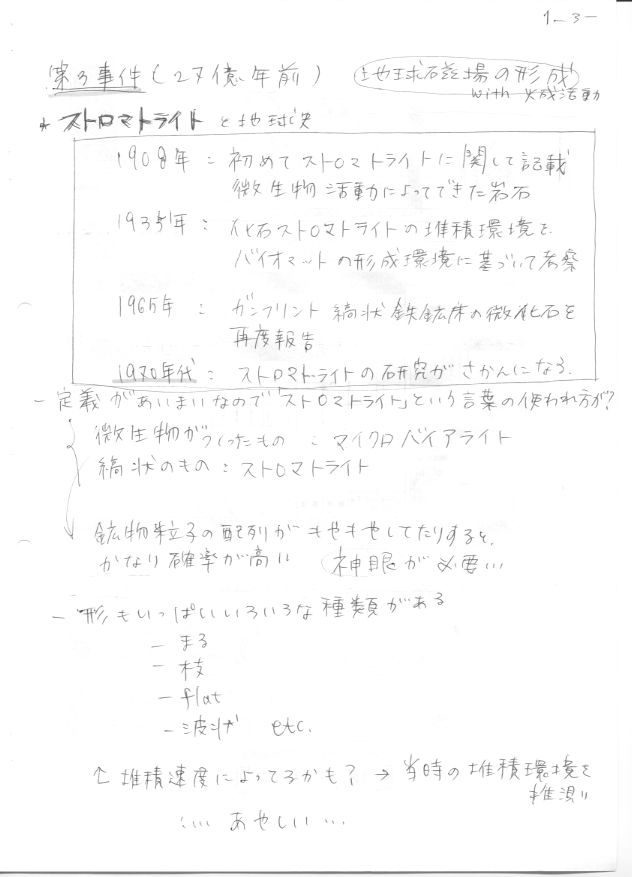 1-3-
第3事件(27億年前) 地球磁場の形成
with 火成活動
* ストロマトライトと地球史
1908年:初めてストロマトライトに関して記載
微生物活動によってできた岩石
1935年:化石ストロマトライトの堆積環境を
バイオマットの形成環境に基づいて考察
1965年:ガンフリント縞状鉄鉱床の微化石を
再度報告
1970年代:ストロマトライトの研究がさかんになる.
- 定義があいまいなので「ストロマトライト」という言葉の使われ方が?
微生物がつくったもの:マイクロバイアライト
縞状のもの:ストロマトライト
鉱物粒子の配列がもやもやしてたりすると、
かなり確率が高い 神眼が必要…
- 形もいっぱいいろいろな種類がある
- まる
- 枝
- flat
- 波状 etc.
↑堆積速度によってるかも? → 当時の堆積環境を
推測!!
:… あやしい …